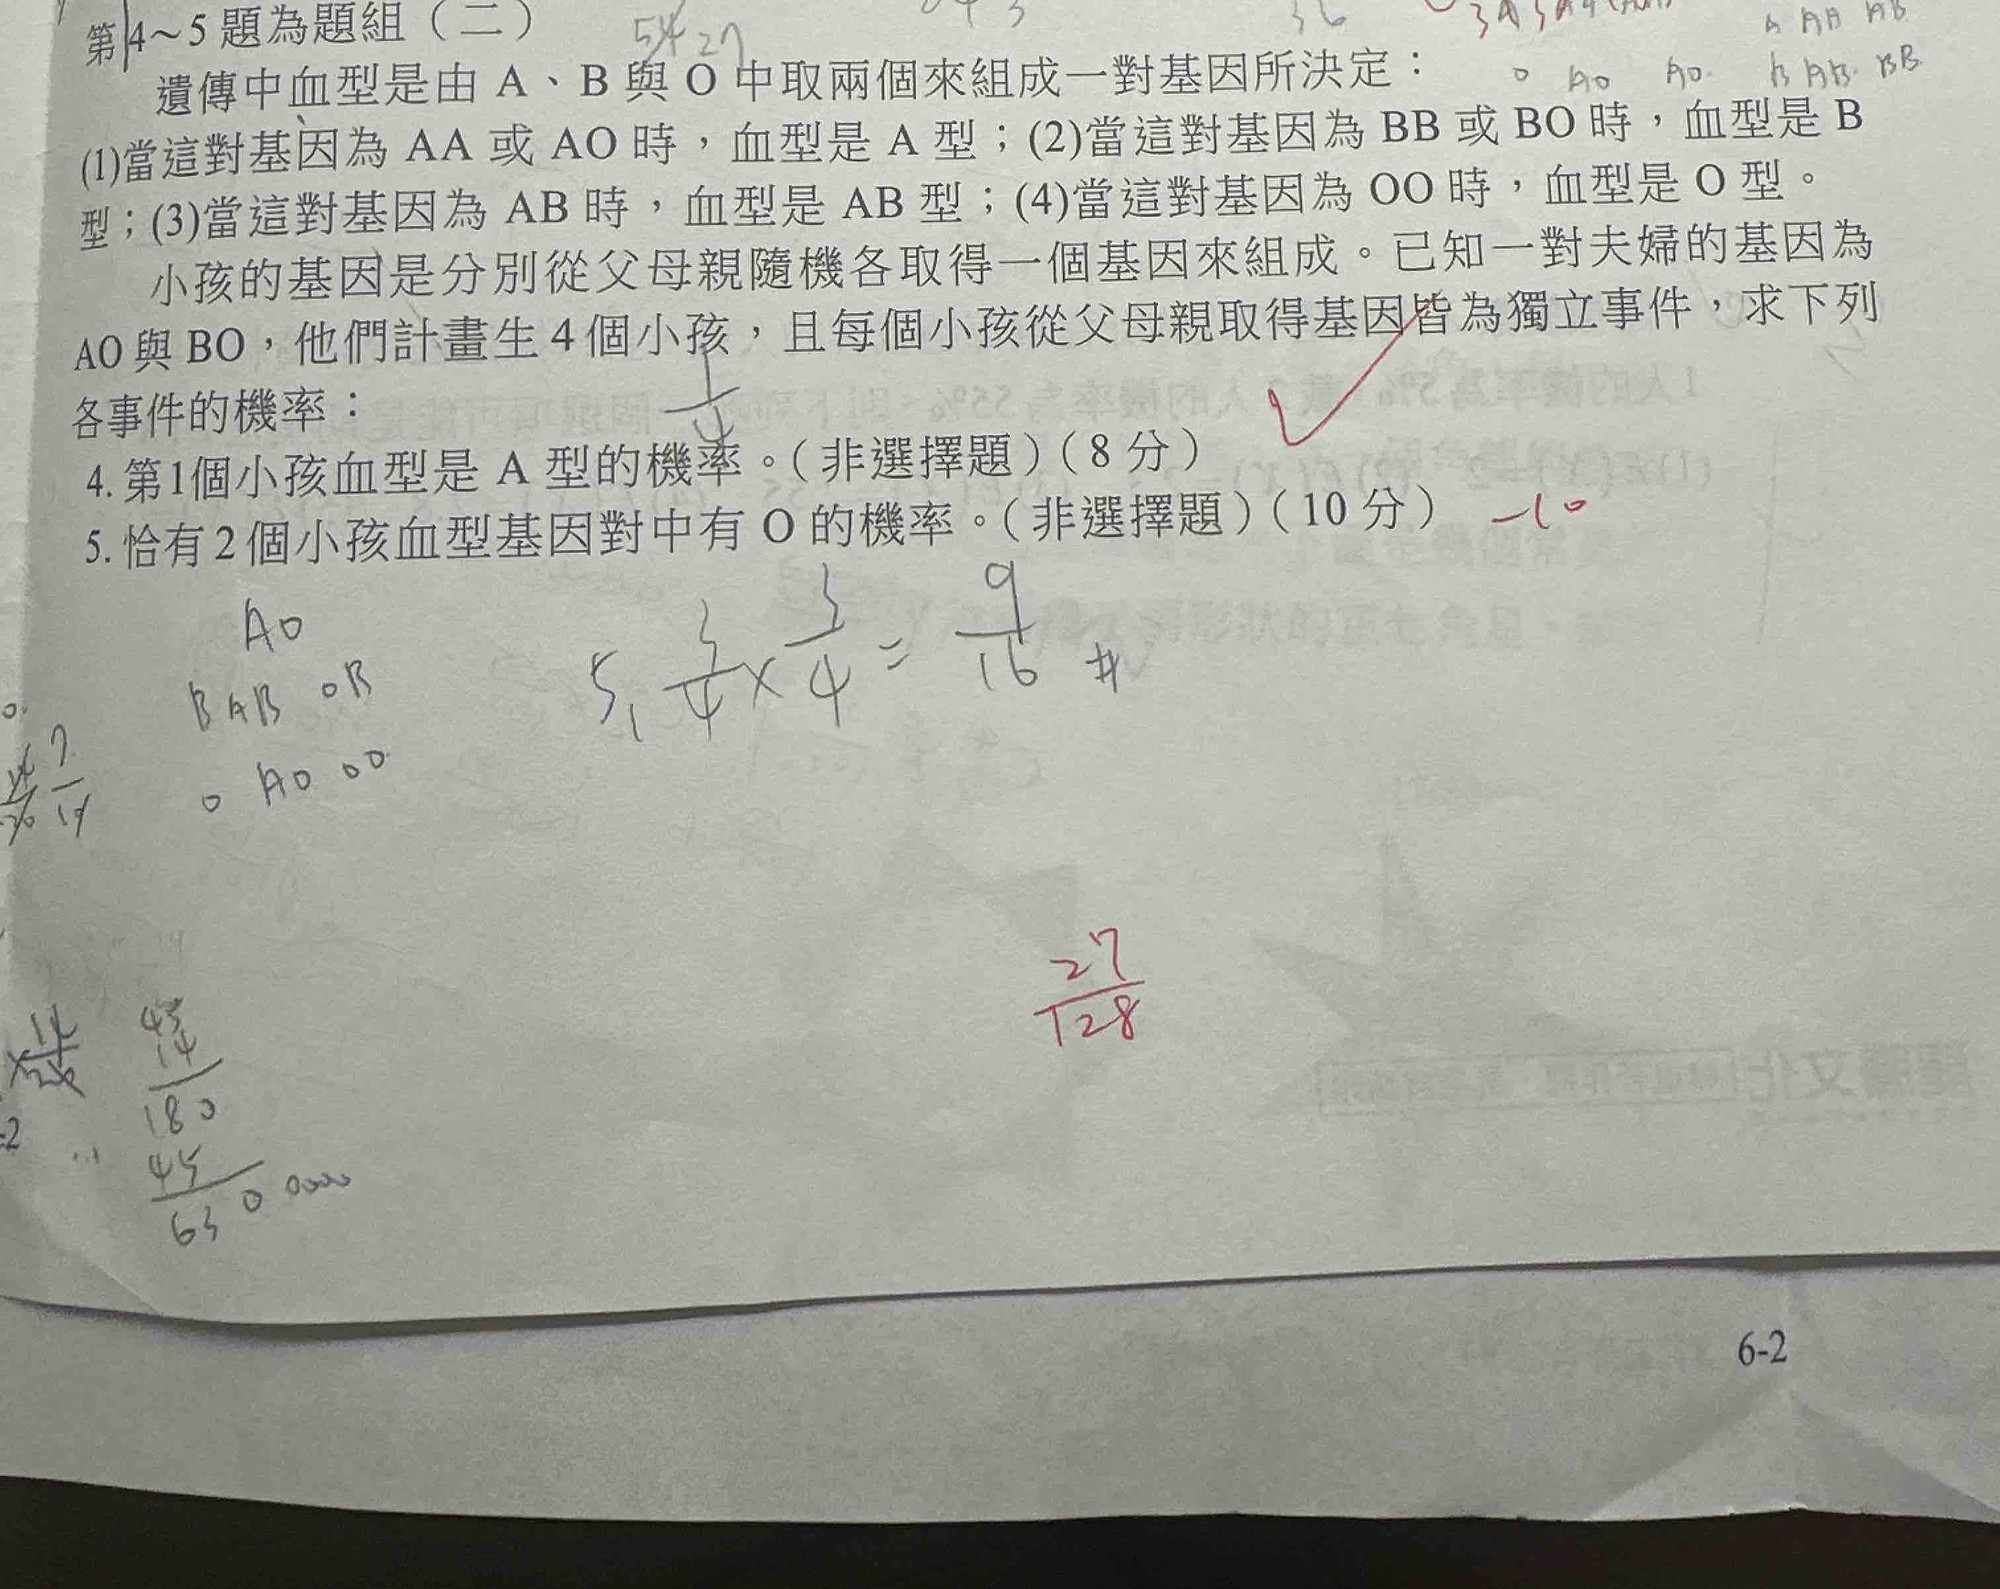 第4～5題為題組（二）
54 27
36
A AA AB
O AO AO B AB BB
遺傳中血型是由 A、B 與 O 中取兩個來組成一對基因所決定：
(1)當這對基因為 AA 或 AO 時，血型是 A 型；(2)當這對基因為 BB 或 BO 時，血型是 B
型；(3)當這對基因為 AB 時，血型是 AB 型；(4)當這對基因為 OO 時，血型是 O 型。
小孩的基因是分別從父母親隨機各取得一個基因來組成。已知一對夫婦的基因為
AO 與 BO，他們計畫生 4 個小孩，且每個小孩從父母親取得基因皆為獨立事件，求下列
各事件的機率：
1/4
4. 第1個小孩血型是 A 型的機率。（非選擇題）（8 分）
5. 恰有 2 個小孩血型基因對中有 O 的機率。（非選擇題）（10 分） -10
AO
B AB OB
O AO OO
5, 3/4 × 3/4 = 9/16 #
27/128
45
14
180
45
630
6-2